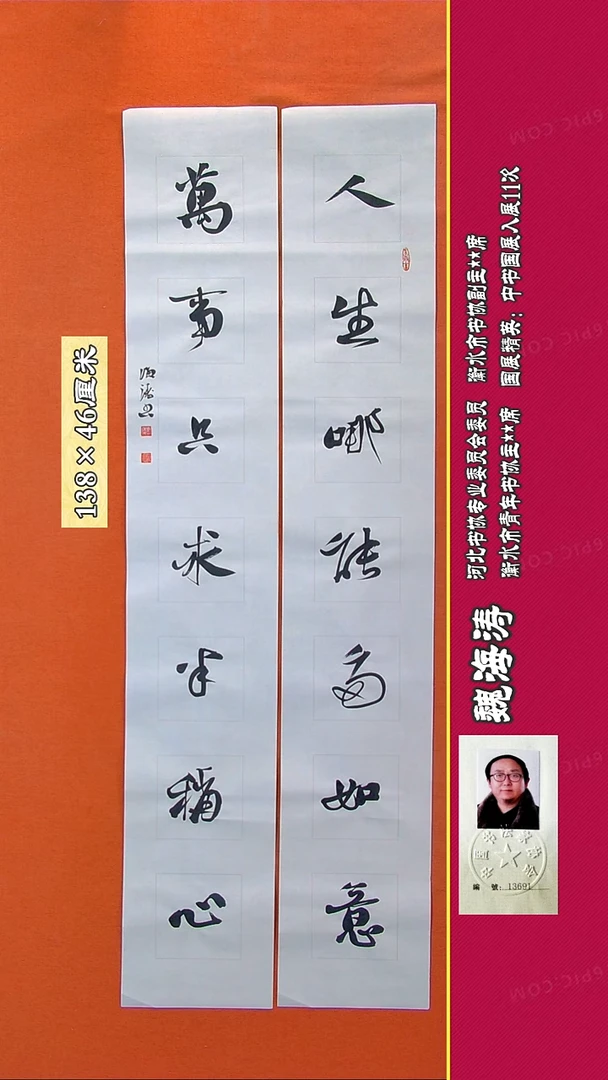 人生哪能多如意
萬事只求半稱心
138×46厘米
魏海涛
河北书协专业委员会委员 衡水市书协副主**席
衡水市青年书协主**席 国展精英：中书国展入展11次
編 號：13691